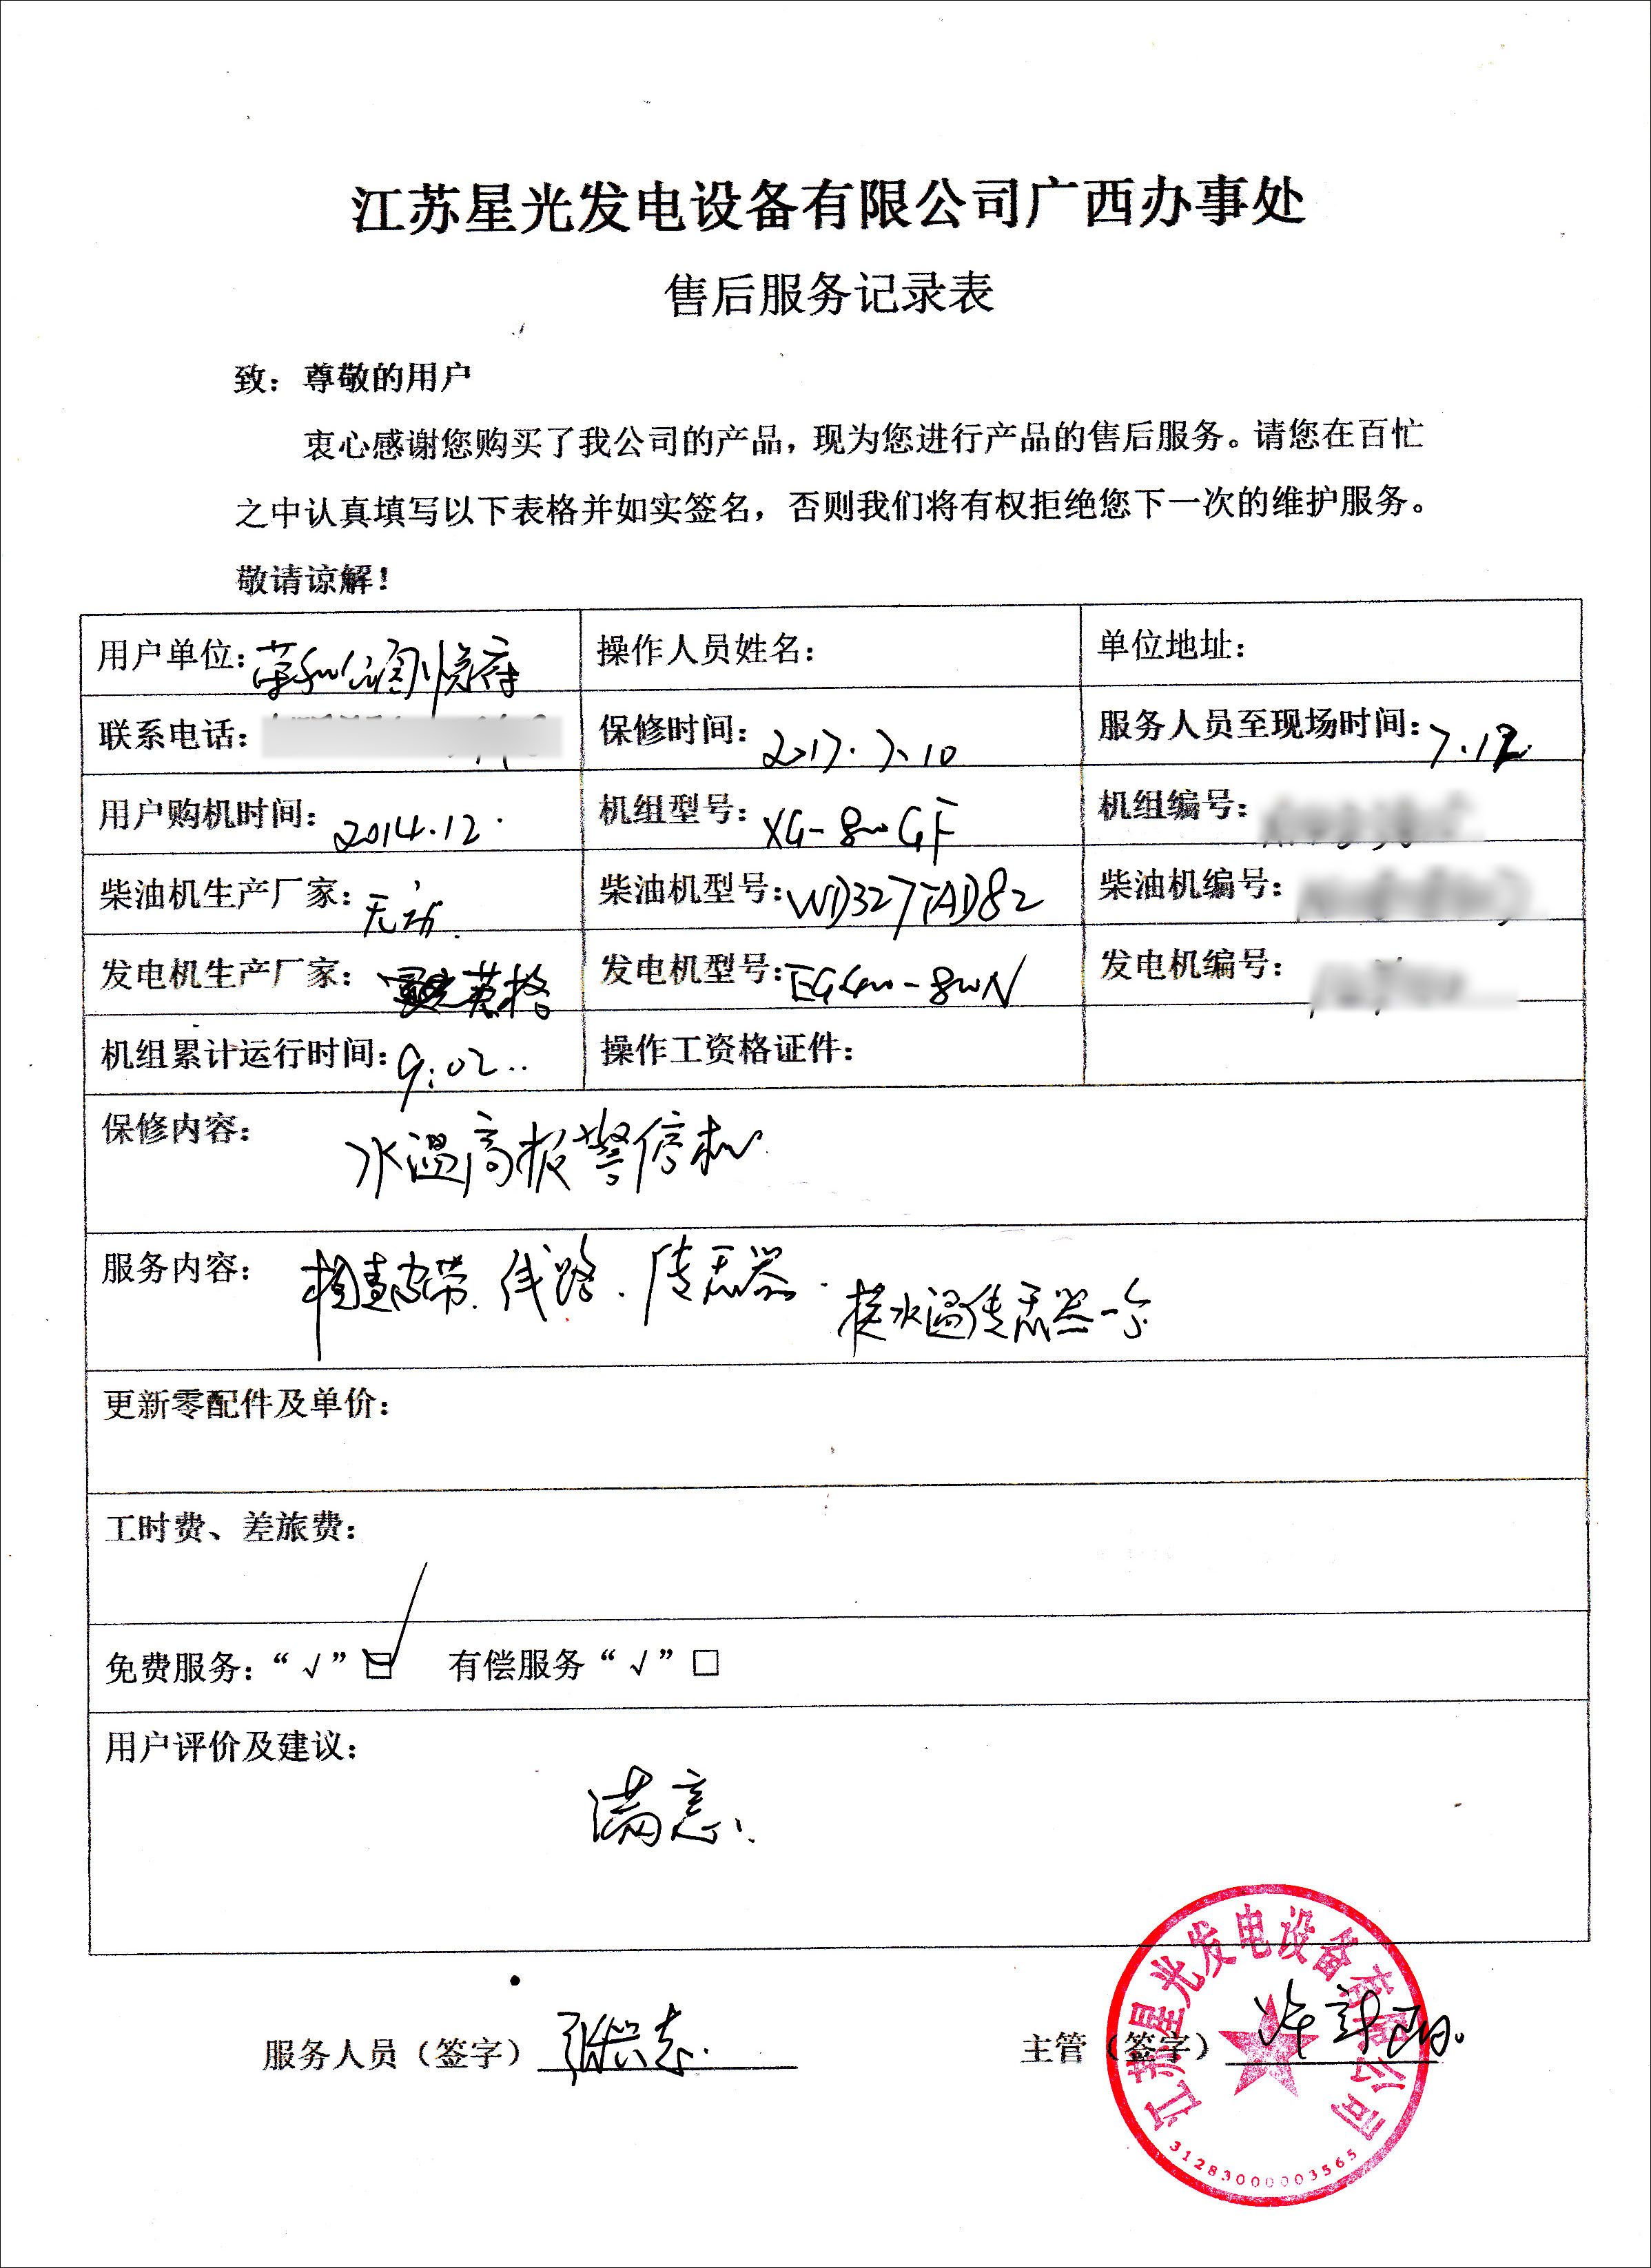 江苏星光发电设备有限公司广西办事处
售后服务记录表
致：尊敬的用户
衷心感谢您购买了我公司的产品，现为您进行产品的售后服务。请您在百忙
之中认真填写以下表格并如实签名，否则我们将有权拒绝您下一次的维护服务。
敬请谅解！
用户单位：荣和公园悦府 操作人员姓名： 单位地址：
联系电话： 保修时间：2017.7.10 服务人员至现场时间：7.12.
用户购机时间：2014.12. 机组型号：XG-800GF 机组编号：
柴油机生产厂家：无动. 柴油机型号：WD327TAD82 柴油机编号：
发电机生产厂家：英格 发电机型号：EG400-800N 发电机编号：
机组累计运行时间：9:02.. 操作工资格证件：
保修内容： 水温高报警停机
服务内容： 检查皮带、线路、传感器. 换水温传感器一个
更新零配件及单价：
工时费、差旅费：
免费服务：“√”☑ 有偿服务“√”□
用户评价及建议：
满意.
服务人员（签字） 主管（签字）
江苏星光发电设备有限公司
3128300003565